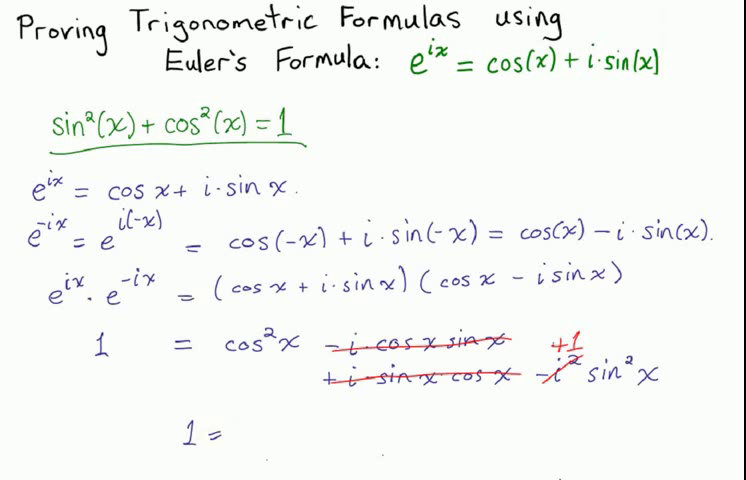 Proving Trigonometric Formulas using
Euler's Formula: e^{ix} = cos(x) + i·sin(x)
sin²(x) + cos²(x) = 1
e^{ix} = cos x + i·sin x.
e^{-ix} = e^{i(-x)} = cos(-x) + i·sin(-x) = cos(x) - i·sin(x).
e^{ix}·e^{-ix} = (cos x + i·sin x)(cos x - i sin x)
1 = cos²x - i·cos x sin x +1
+ i·sin x cos x - i² sin²x
1 =